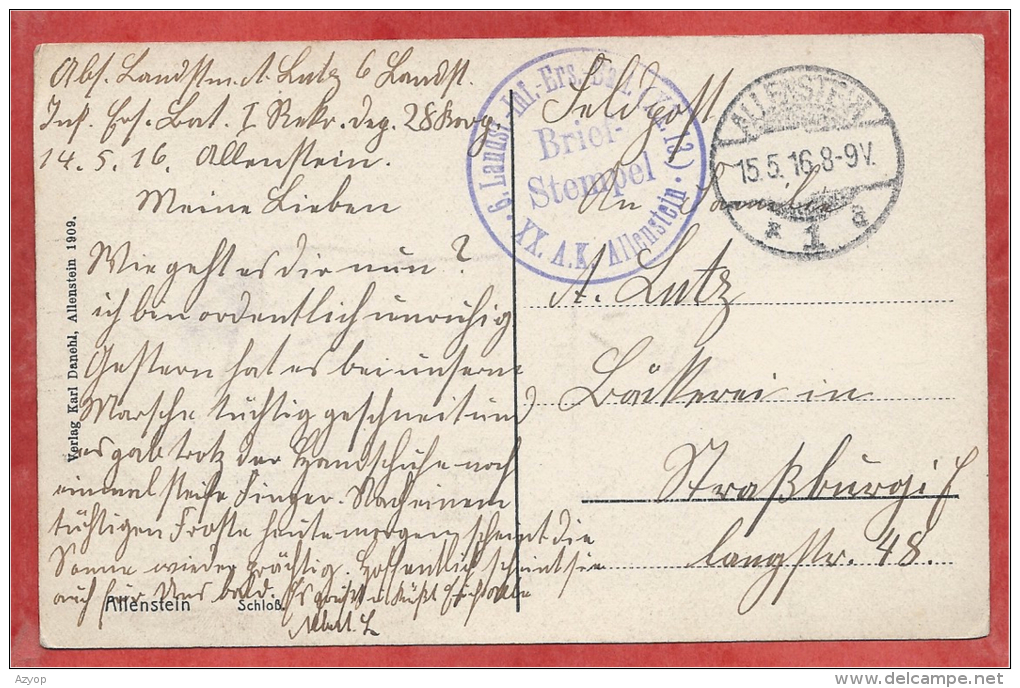 Abs. Landstm. A. Lutz 6 Landst.
Inf. Ers. Bat. I Rekr. Dep. 28 Korp.
14. 5. 16. Allenstein.
Meine Lieben
Wie geht es dir nun?
ich bin ordentlich unruhig
Gestern hat es bei unserm
Marsche tüchtig geschneit und
es gab trotz der Handschuhe noch
einmal steife Finger. Nach einem
tüchtigen Froste heute morgen scheint die
Sonne wieder prächtig. Hoffentlich scheint sie
auch für Uns bald. Es grüßt u. küßt Euch alle
Albert L
Verlag Karl Danehl, Allenstein 1909.
Allenstein Schloß
6. Landst. Inf.-Ers.-Batl.
Brief-
Stempel
XX. A.K. Allenstein.
ALLENSTEIN
15.5.16.8-9V.
* 1 a
Feldpost
An Familie
A. Lutz
Bäckerei in
Straßburg i/E
langstr. 48.
Azyop
www.delcampe.net